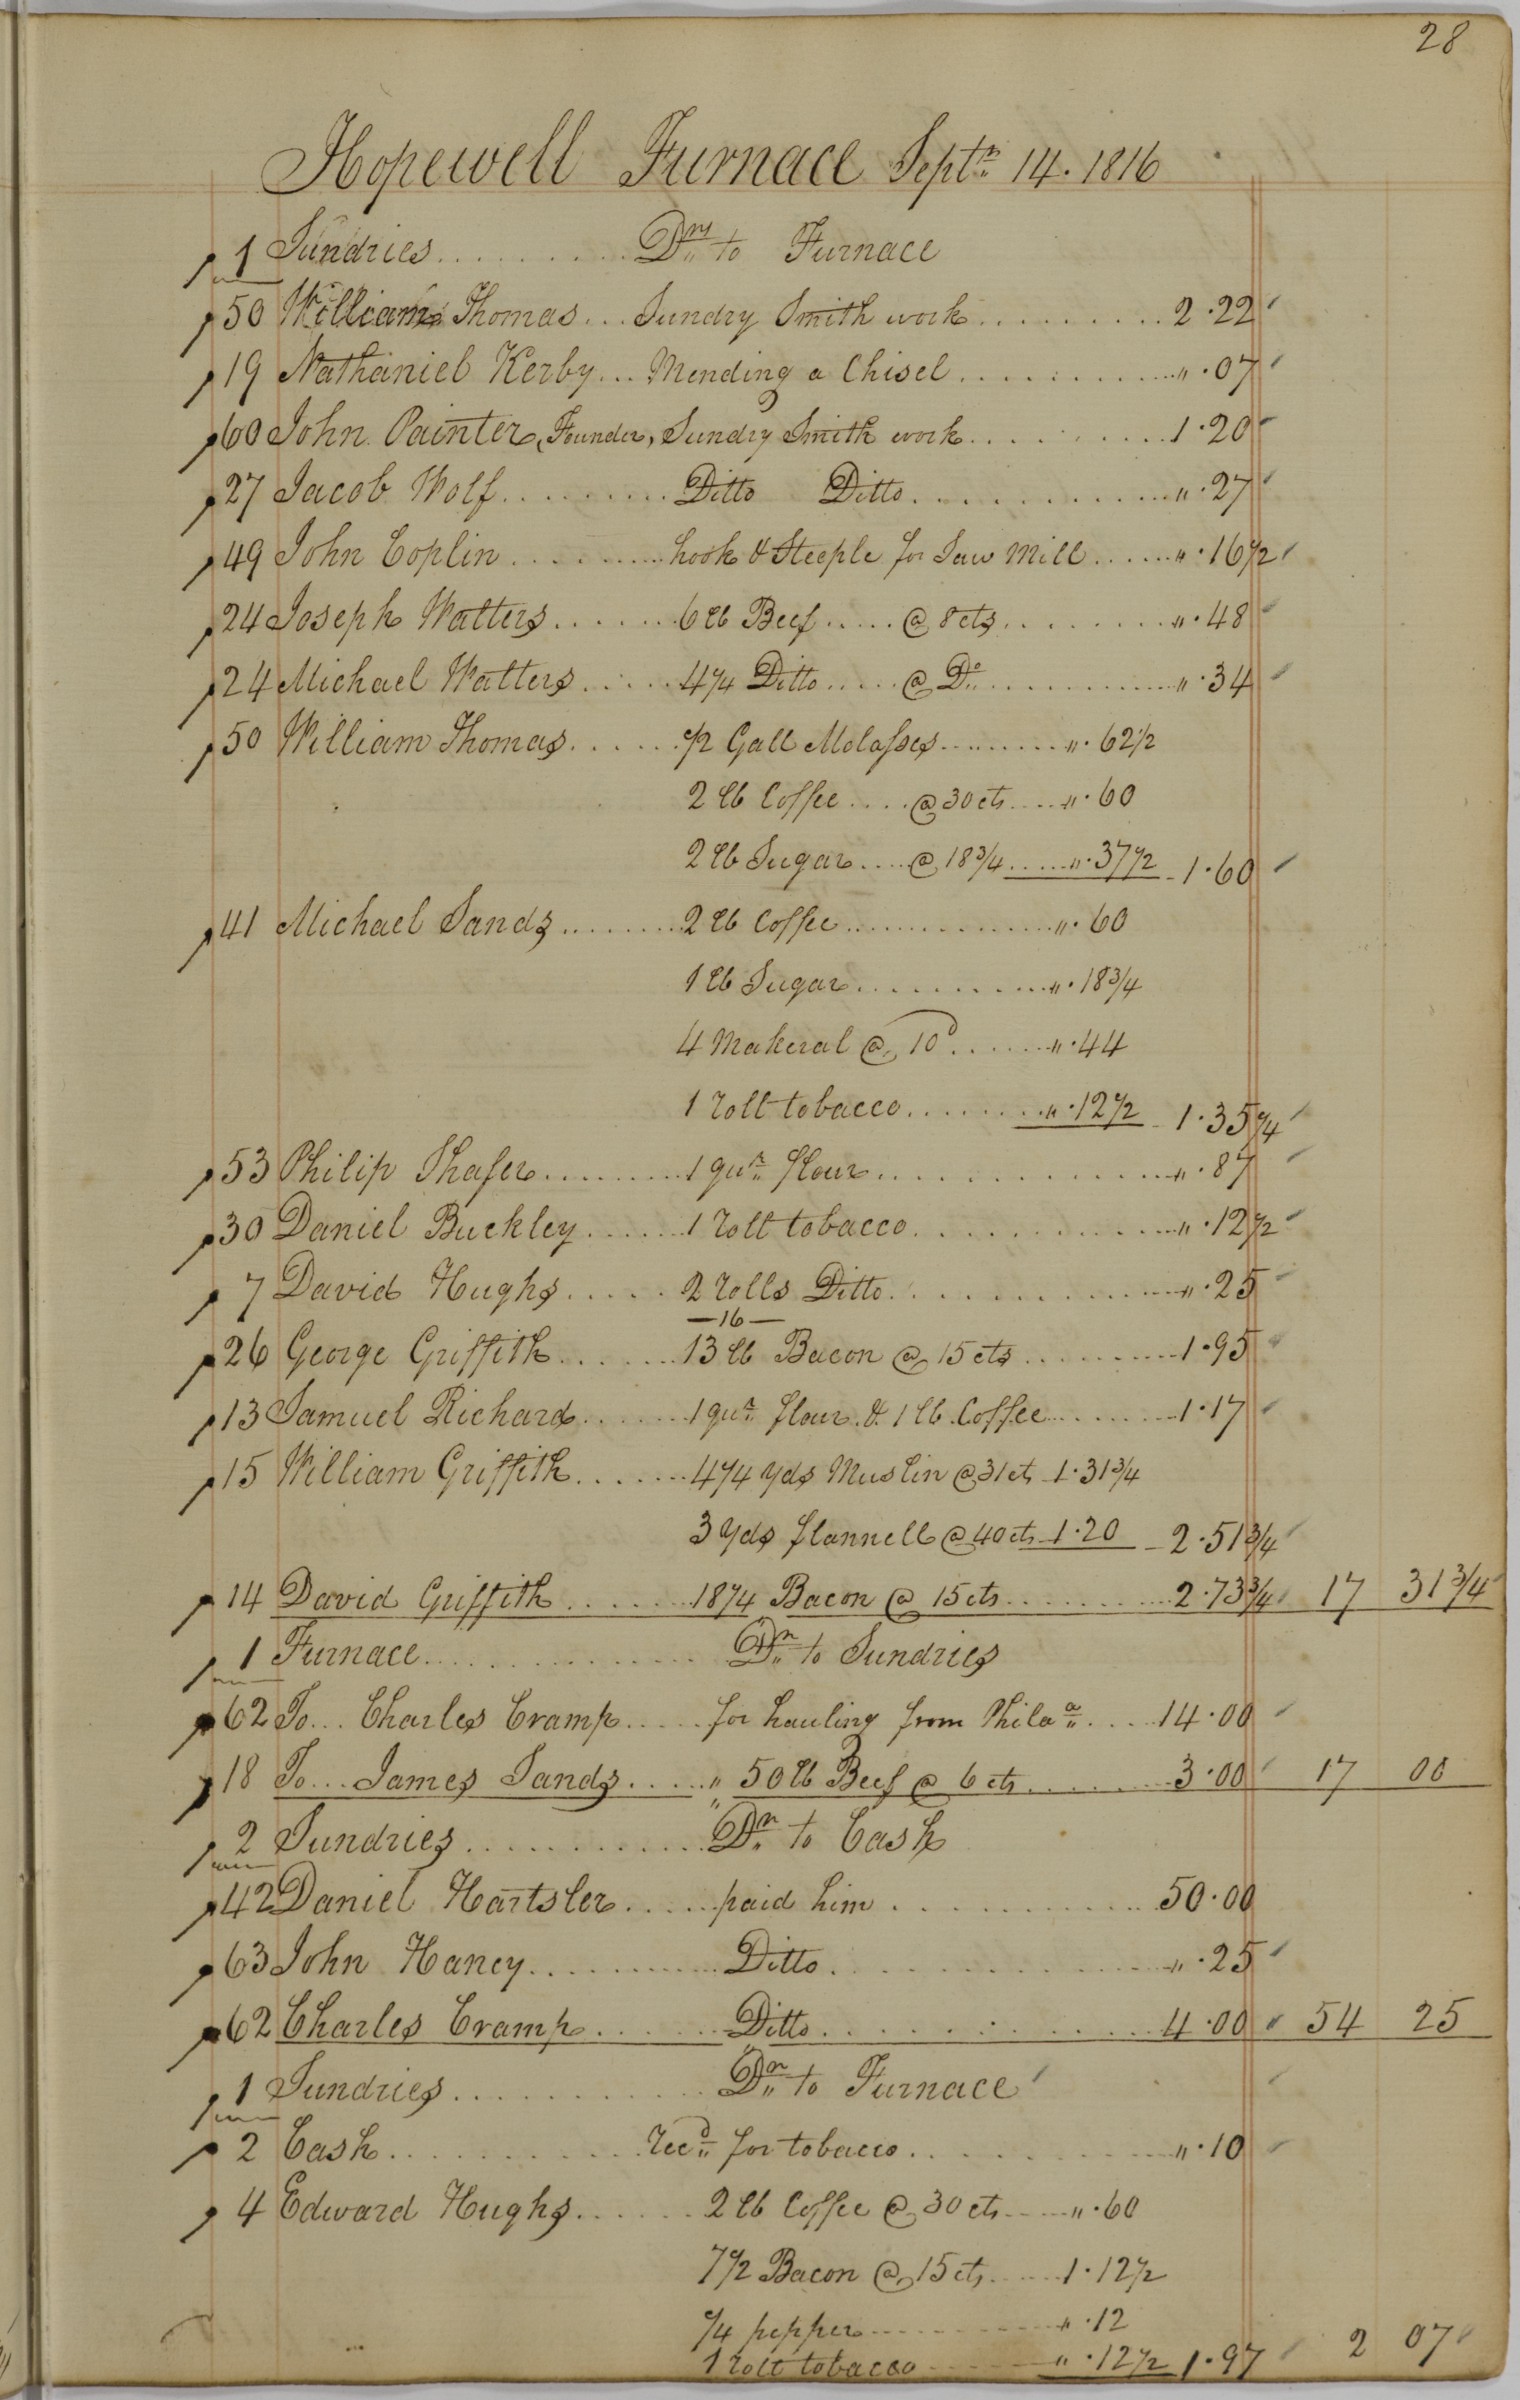 28
Hopewell Furnace Septr 14. 1816
1 Sundries .......... Drs to Furnace
50 William Thomas ... Sundry Smith work ......... 2.22
19 Nathaniel Kerby ... Mending a Chisel ......... ".07
60 John Painter, Founder, Sundry Smith work ......... 1.20
27 Jacob Wolf ......... Ditto Ditto ......... ".27
49 John Coplin ......... hook & Steeple for Saw Mill ...... ".16½
24 Joseph Watters ....... 6 lb Beef ..... @ 8 cts ......... ".48
24 Michael Watters ...... 4¼ Ditto ..... @ Do ......... ".34
50 William Thomas ...... ½ Gall Molasses ......... ".62½
2 lb Coffee .... @ 30 cts .... ".60
2 lb Sugar .... @ 18¾ ..... ".37½ 1.60
41 Michael Sands ........ 2 lb Coffee ............ ".60
1 lb Sugar .......... ".18¾
4 Makeral @ 10d ...... ".44
1 roll tobacco ........ ".12½ 1.35¼
53 Philip Shafer ........ 1 qur flour ............ ".87
30 Daniel Buckley ...... 1 roll tobacco ............ ".12½
7 David Hughs ..... 2 rolls Ditto ............ ".25
—16—
26 George Griffith ...... 13 lb Bacon @ 15 cts ......... 1.95
13 Samuel Richard ...... 1 qur flour & 1 lb Coffee ........ 1.17
15 William Griffith ....... 4¼ yds Muslin @ 31 cts 1.31¾
3 Yds flannell @ 40 cts 1.20 2.51¾
14 David Griffith ....... 18¼ Bacon @ 15 cts .......... 2.73¾ 17 31¾
1 Furnace ............... Dr to Sundries
62 To... Charles Cramp ..... for hauling from Phila .... 14.00
18 To... James Sands ..... " 50 lb Beef @ 6 cts ......... 3.00 17 00
2 Sundries ............ Dr to Cash
42 Daniel Hartsler ..... paid him ............ 50.00
63 John Haney .......... Ditto ............... ".25
62 Charles Cramp ....... Ditto ............... 4.00 54 25
1 Sundries ............ Dr to Furnace
2 Cash ............ recd for tobacco ............ ".10
4 Edward Hughs ...... 2 lb Coffee @ 30 cts .... ".60
7½ Bacon @ 15 cts ..... 1.12½
¼ pepper .......... ".12
1 roll tobacco ....... ".12½ 1.97 2 07